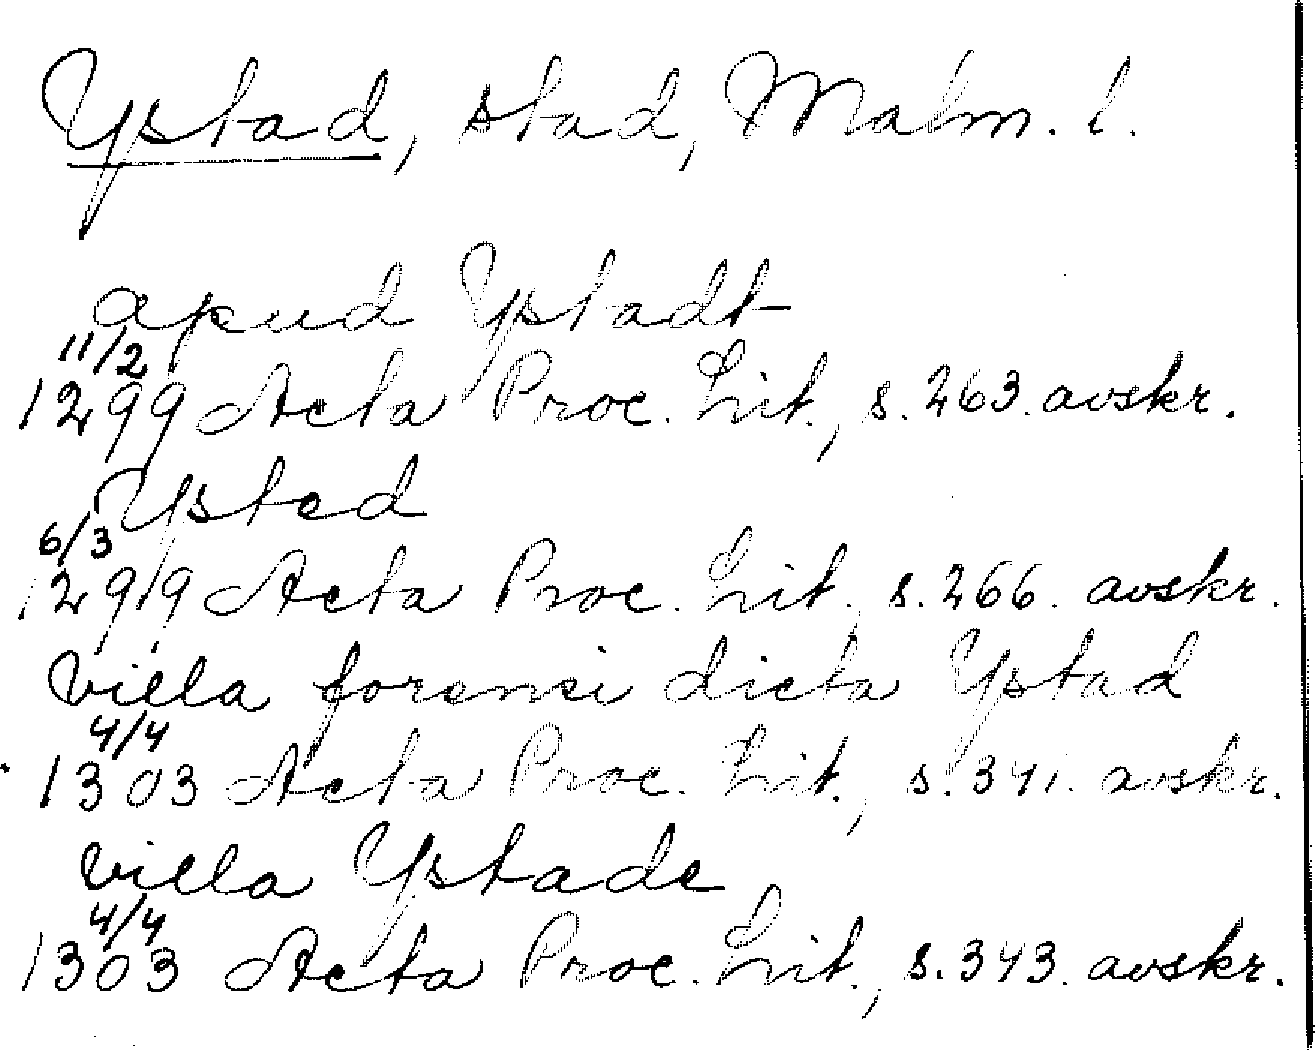 Ystad, stad, Malm. l.
apud Ystadt
11/2
1299 Acta Proc. Lit., s. 263. avskr.
Ysted
6/3
1299 Acta Proc. Lit., s. 266. avskr.
villa forensi dicta Ystad
4/4
1303 Acta Proc. Lit., s. 341. avskr.
villa Ystade
4/4
1303 Acta Proc. Lit., s. 343. avskr.